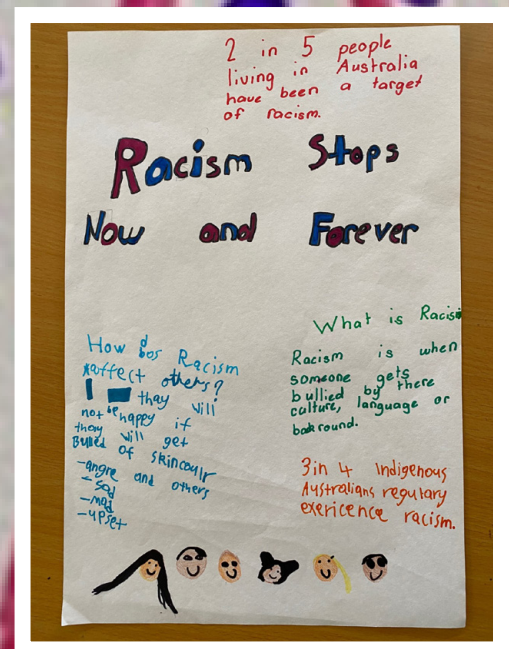 2 in 5 people
living in Australia
have been a target
of racism.
Racism Stops
Now and Forever
How dos Racism
affect others?
thay will
not be happy if
thay will get
Bulled of skincoulr
-angre and others
-sad
-mad
-upset
What is Racism
Racism is when
someone gets
bullied by there
culture, language or
bakround.
3 in 4 Indigenous
Australians regulary
exericence racism.